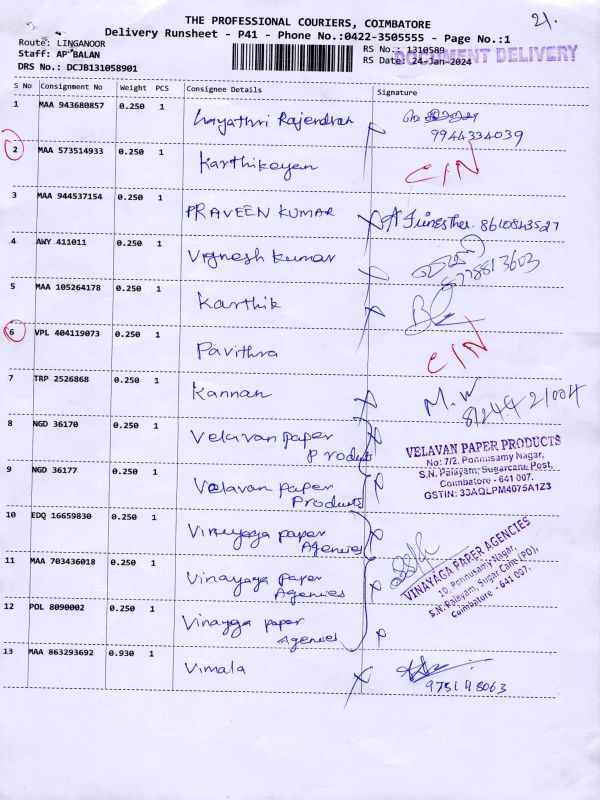 21.
THE PROFESSIONAL COURIERS, COIMBATORE
Delivery Runsheet - P41 - Phone No.:0422-3505555 - Page No.:1
Route: LINGANOOR
Staff: AP BALAN
DRS No.: DCJB131058901
RS No.: 1310589
RS Date: 24-Jan-2024
DOCUMENT DELIVERY
S No Consignment No Weight PCS Consignee Details Signature
1 MAA 943680857 0.250 1 Gayathri Rajendran
9944334039
2 MAA 573514933 0.250 1 Karthikeyan C/N
3 MAA 944537154 0.250 1 PRAVEEN KUMAR 8610843527
4 AWY 411011 0.250 1 Vignesh Kumar
8778813603
5 MAA 105264178 0.250 1 Karthik
6 VPL 404119073 0.250 1 Pavithra C/N
7 TRP 2526868 0.250 1 Kannan M.W
8124421004
8 NGD 36170 0.250 1 Velavan paper
Products
VELAVAN PAPER PRODUCTS
No: 7/2, Ponnusamy Nagar,
S.N. Palayam, Sugarcane Post,
Coimbatore - 641 007.
GSTIN: 33AQLPM4075A1Z3
9 NGD 36177 0.250 1 Velavan paper
Products
10 EDQ 16659830 0.250 1 Vinayaga paper
Agencies
VINAYAGA PAPER AGENCIES
10, Ponnusamy Nagar,
S.N. Palayam, Sugar Cane (PO),
Coimbatore - 641 007.
11 MAA 703436018 0.250 1 Vinayaga paper
Agencies
12 POL 8090002 0.250 1 Vinayga paper
Agencies
13 MAA 863293692 0.930 1 Vimala
975148063